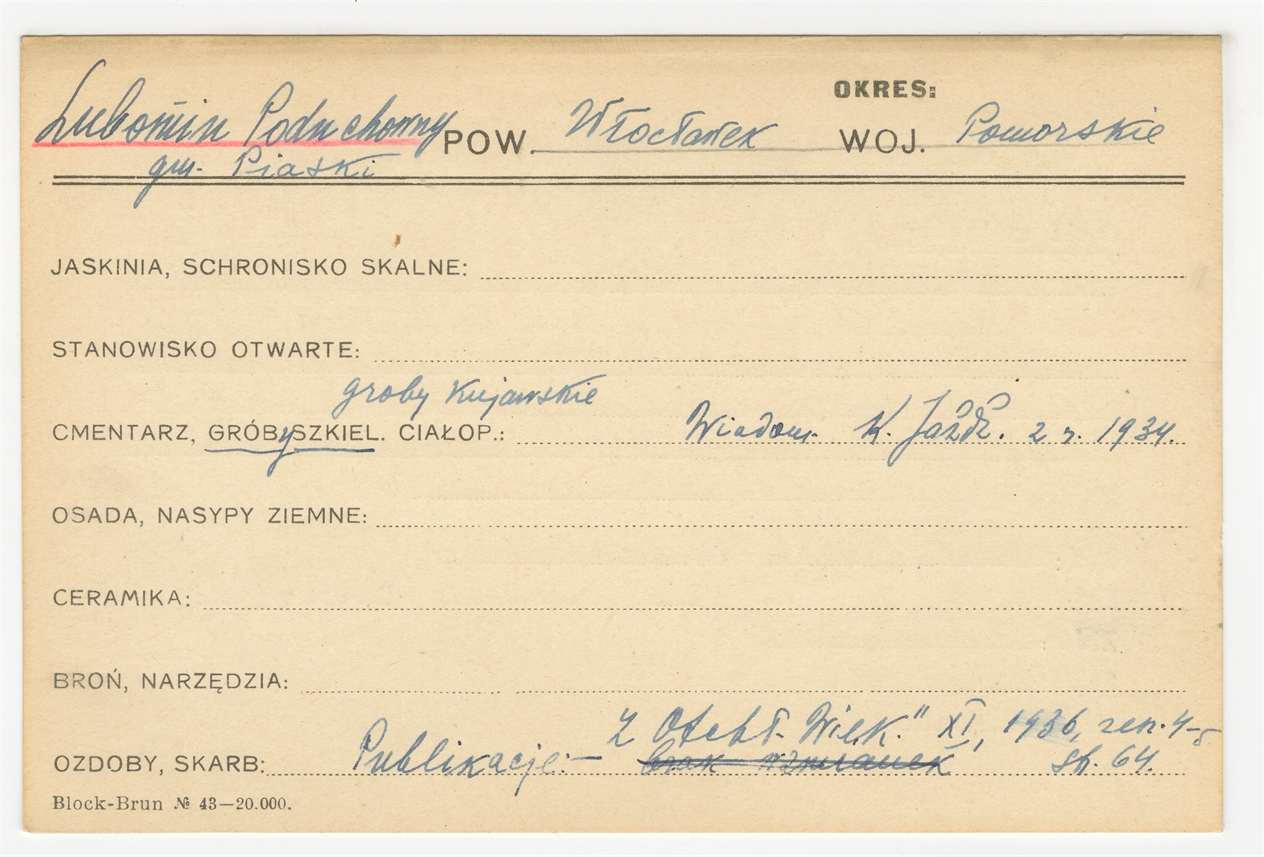 OKRES:
Lubomin Poduchowny POW. Włocławek WOJ. Pomorskie
gm. Piaski
JASKINIA, SCHRONISKO SKALNE:
STANOWISKO OTWARTE:
groby kujawskie
CMENTARZ, GRÓBySZKIEL. CIAŁOP.: Wiadom. K. Jażdż. z r. 1934.
OSADA, NASYPY ZIEMNE:
CERAMIKA:
BROŃ, NARZĘDZIA:
Z Otchł. Wiek." XI, 1936, zesz. 4-5
OZDOBY, SKARB: Publikacje:— brak wzmianek str. 64.
Block-Brun № 43—20.000.